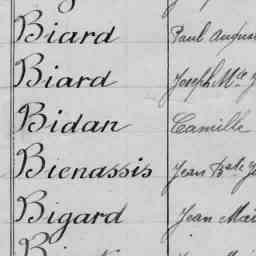 Biard Paul August
Biard Joseph Mce
Bidan Camille
Bienassis Jean Bste
Bigard Jean